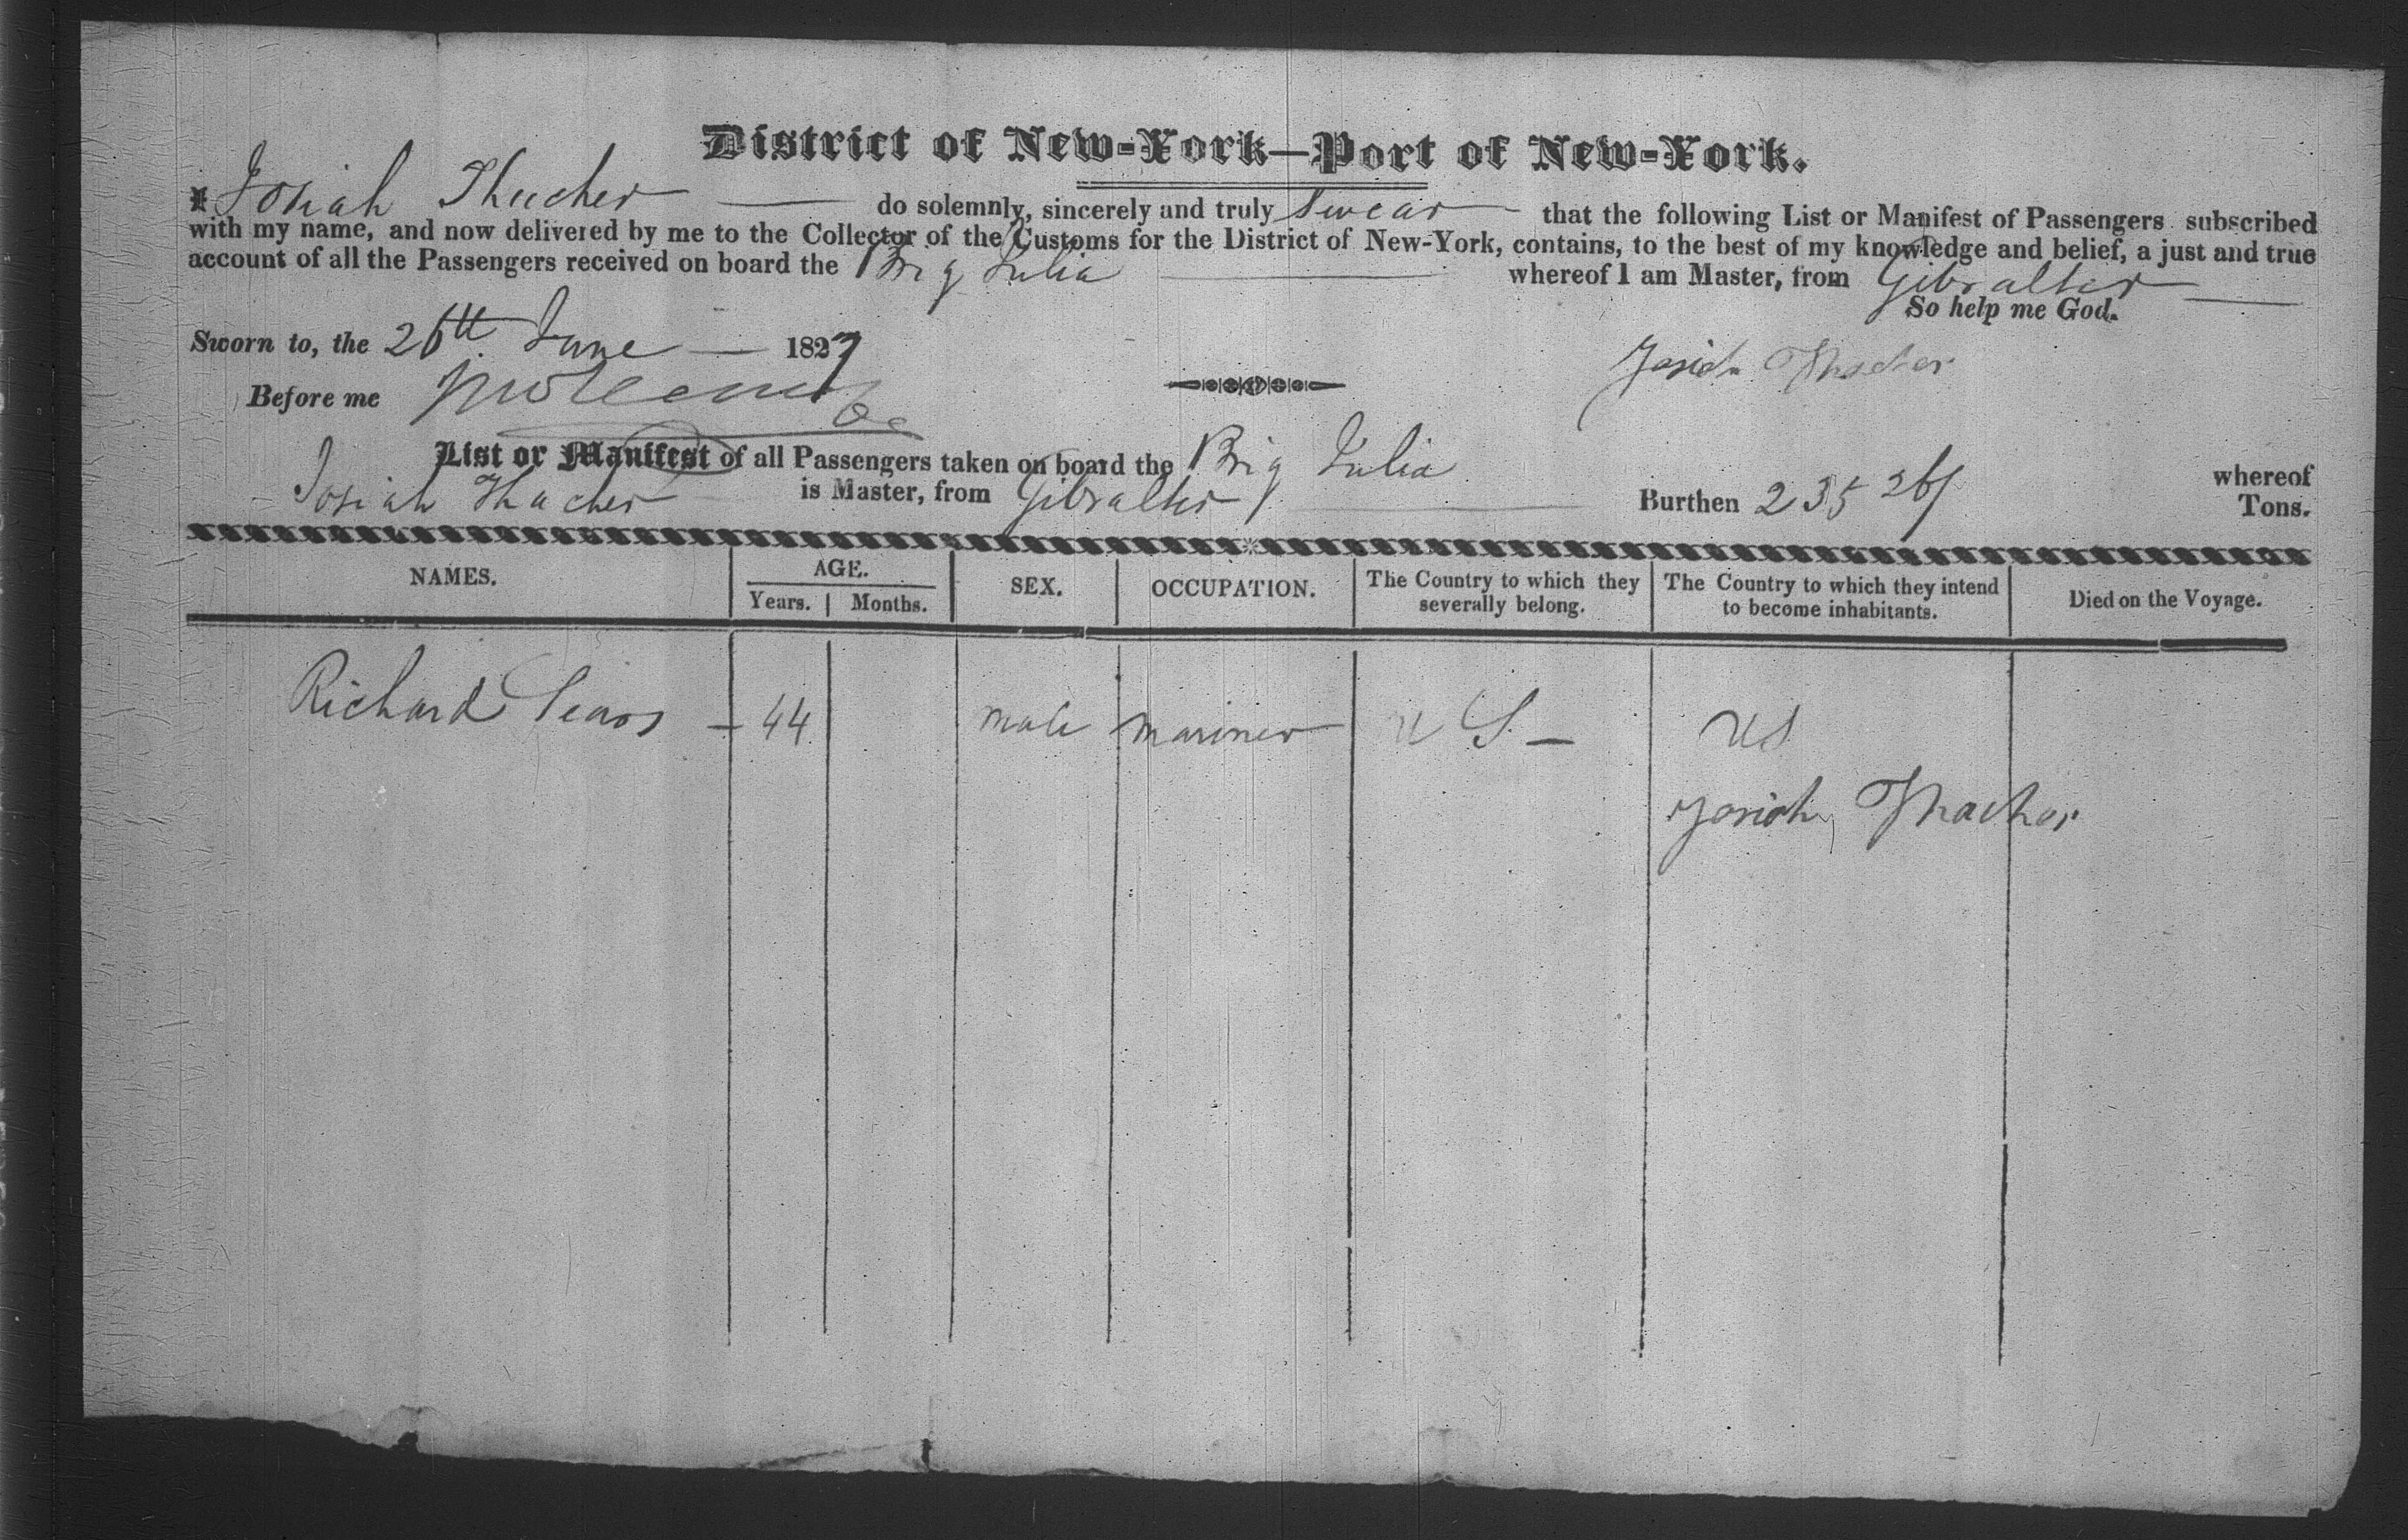 District of New-York—Port of New-York.
I Josiah Thacher — do solemnly, sincerely and truly Swear — that the following List or Manifest of Passengers subscribed
with my name, and now delivered by me to the Collector of the Customs for the District of New-York, contains, to the best of my knowledge and belief, a just and true
account of all the Passengers received on board the Brig Julia — whereof I am Master, from Gibralter —
So help me God.
Sworn to, the 26th June — 1827
Josiah Thacher
Before me
List or Manifest of all Passengers taken on board the Brig Julia whereof
Josiah Thacher is Master, from Gibralter — Burthen 235 Tons.
NAMES. AGE. SEX. OCCUPATION. The Country to which they severally belong. The Country to which they intend to become inhabitants. Died on the Voyage.
Years. Months.
Richard Sears — 44 male mariner U S — U S
Josiah Thacher